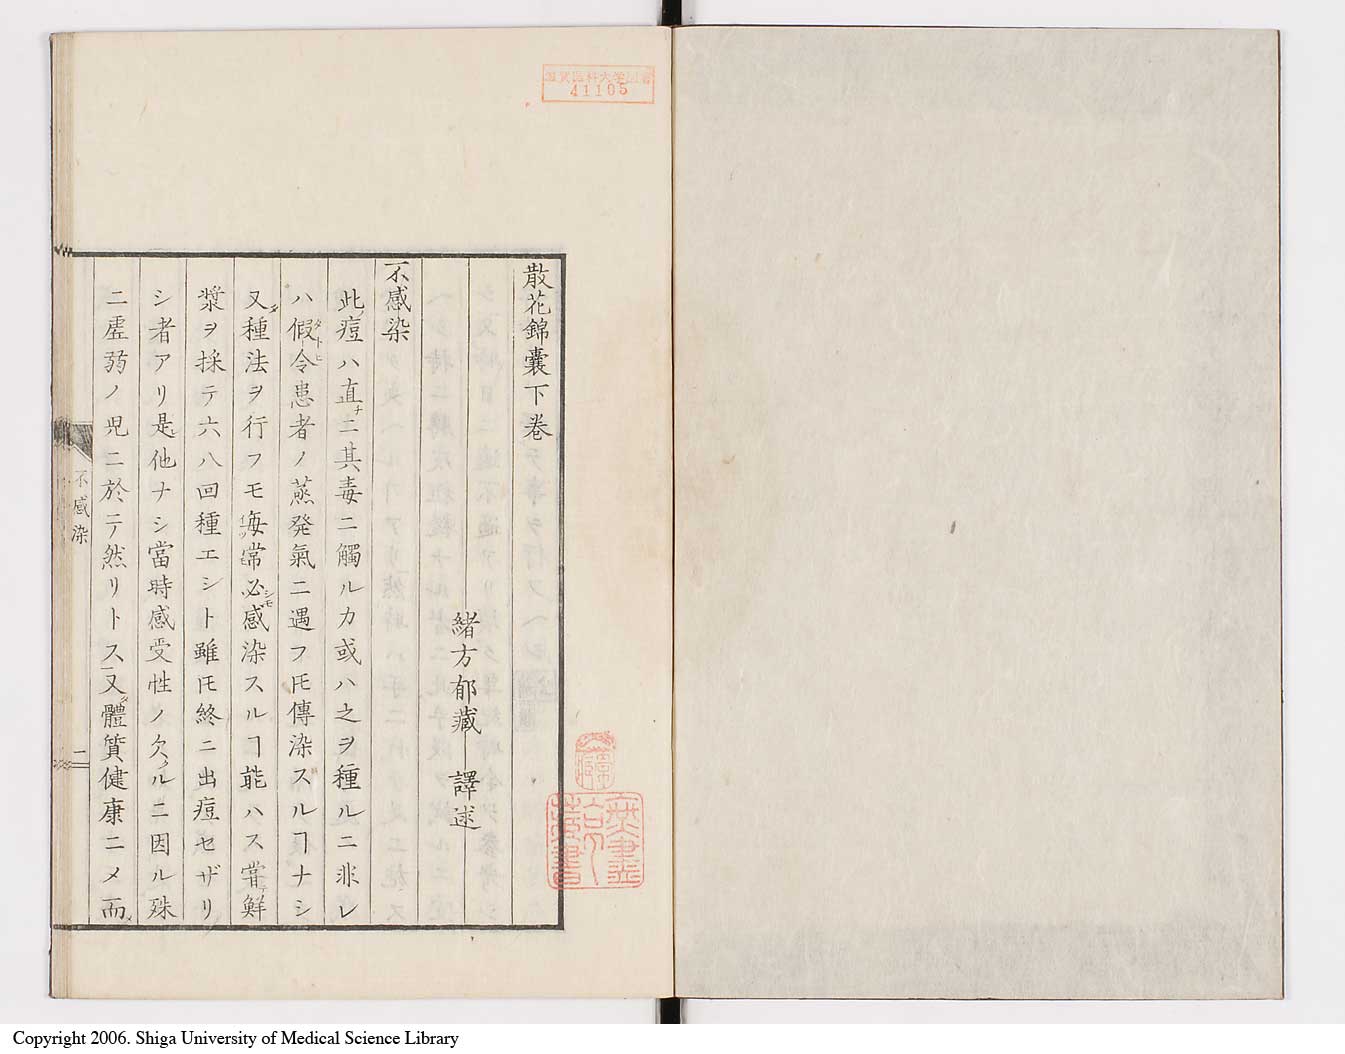 散花錦囊下巻
緒方郁藏 譯述
不感染
此痘ハ直ナニ其毒ニ觸ルカ或ハ之ヲ種ルニ非レ
ハ假令タトヒ患者ノ蒸発氣ニ遇フ𪜈傳染スルヿナシ
又タ種法ヲ行フモ毎常イツモ必シモ感染スルヿ能ハス甞テ鮮
漿ヲ採テ六八回種エシト雖𪜈終ニ出痘セザリ
シ者アリ是レ他ナシ當時感受性ノ欠ルニ因ル殊
ニ虚弱ノ児ニ於テ然リトス又タ體質健康ニメ而
不感染
二
滋賀医科大学図書
41105
Copyright 2006. Shiga University of Medical Science Library